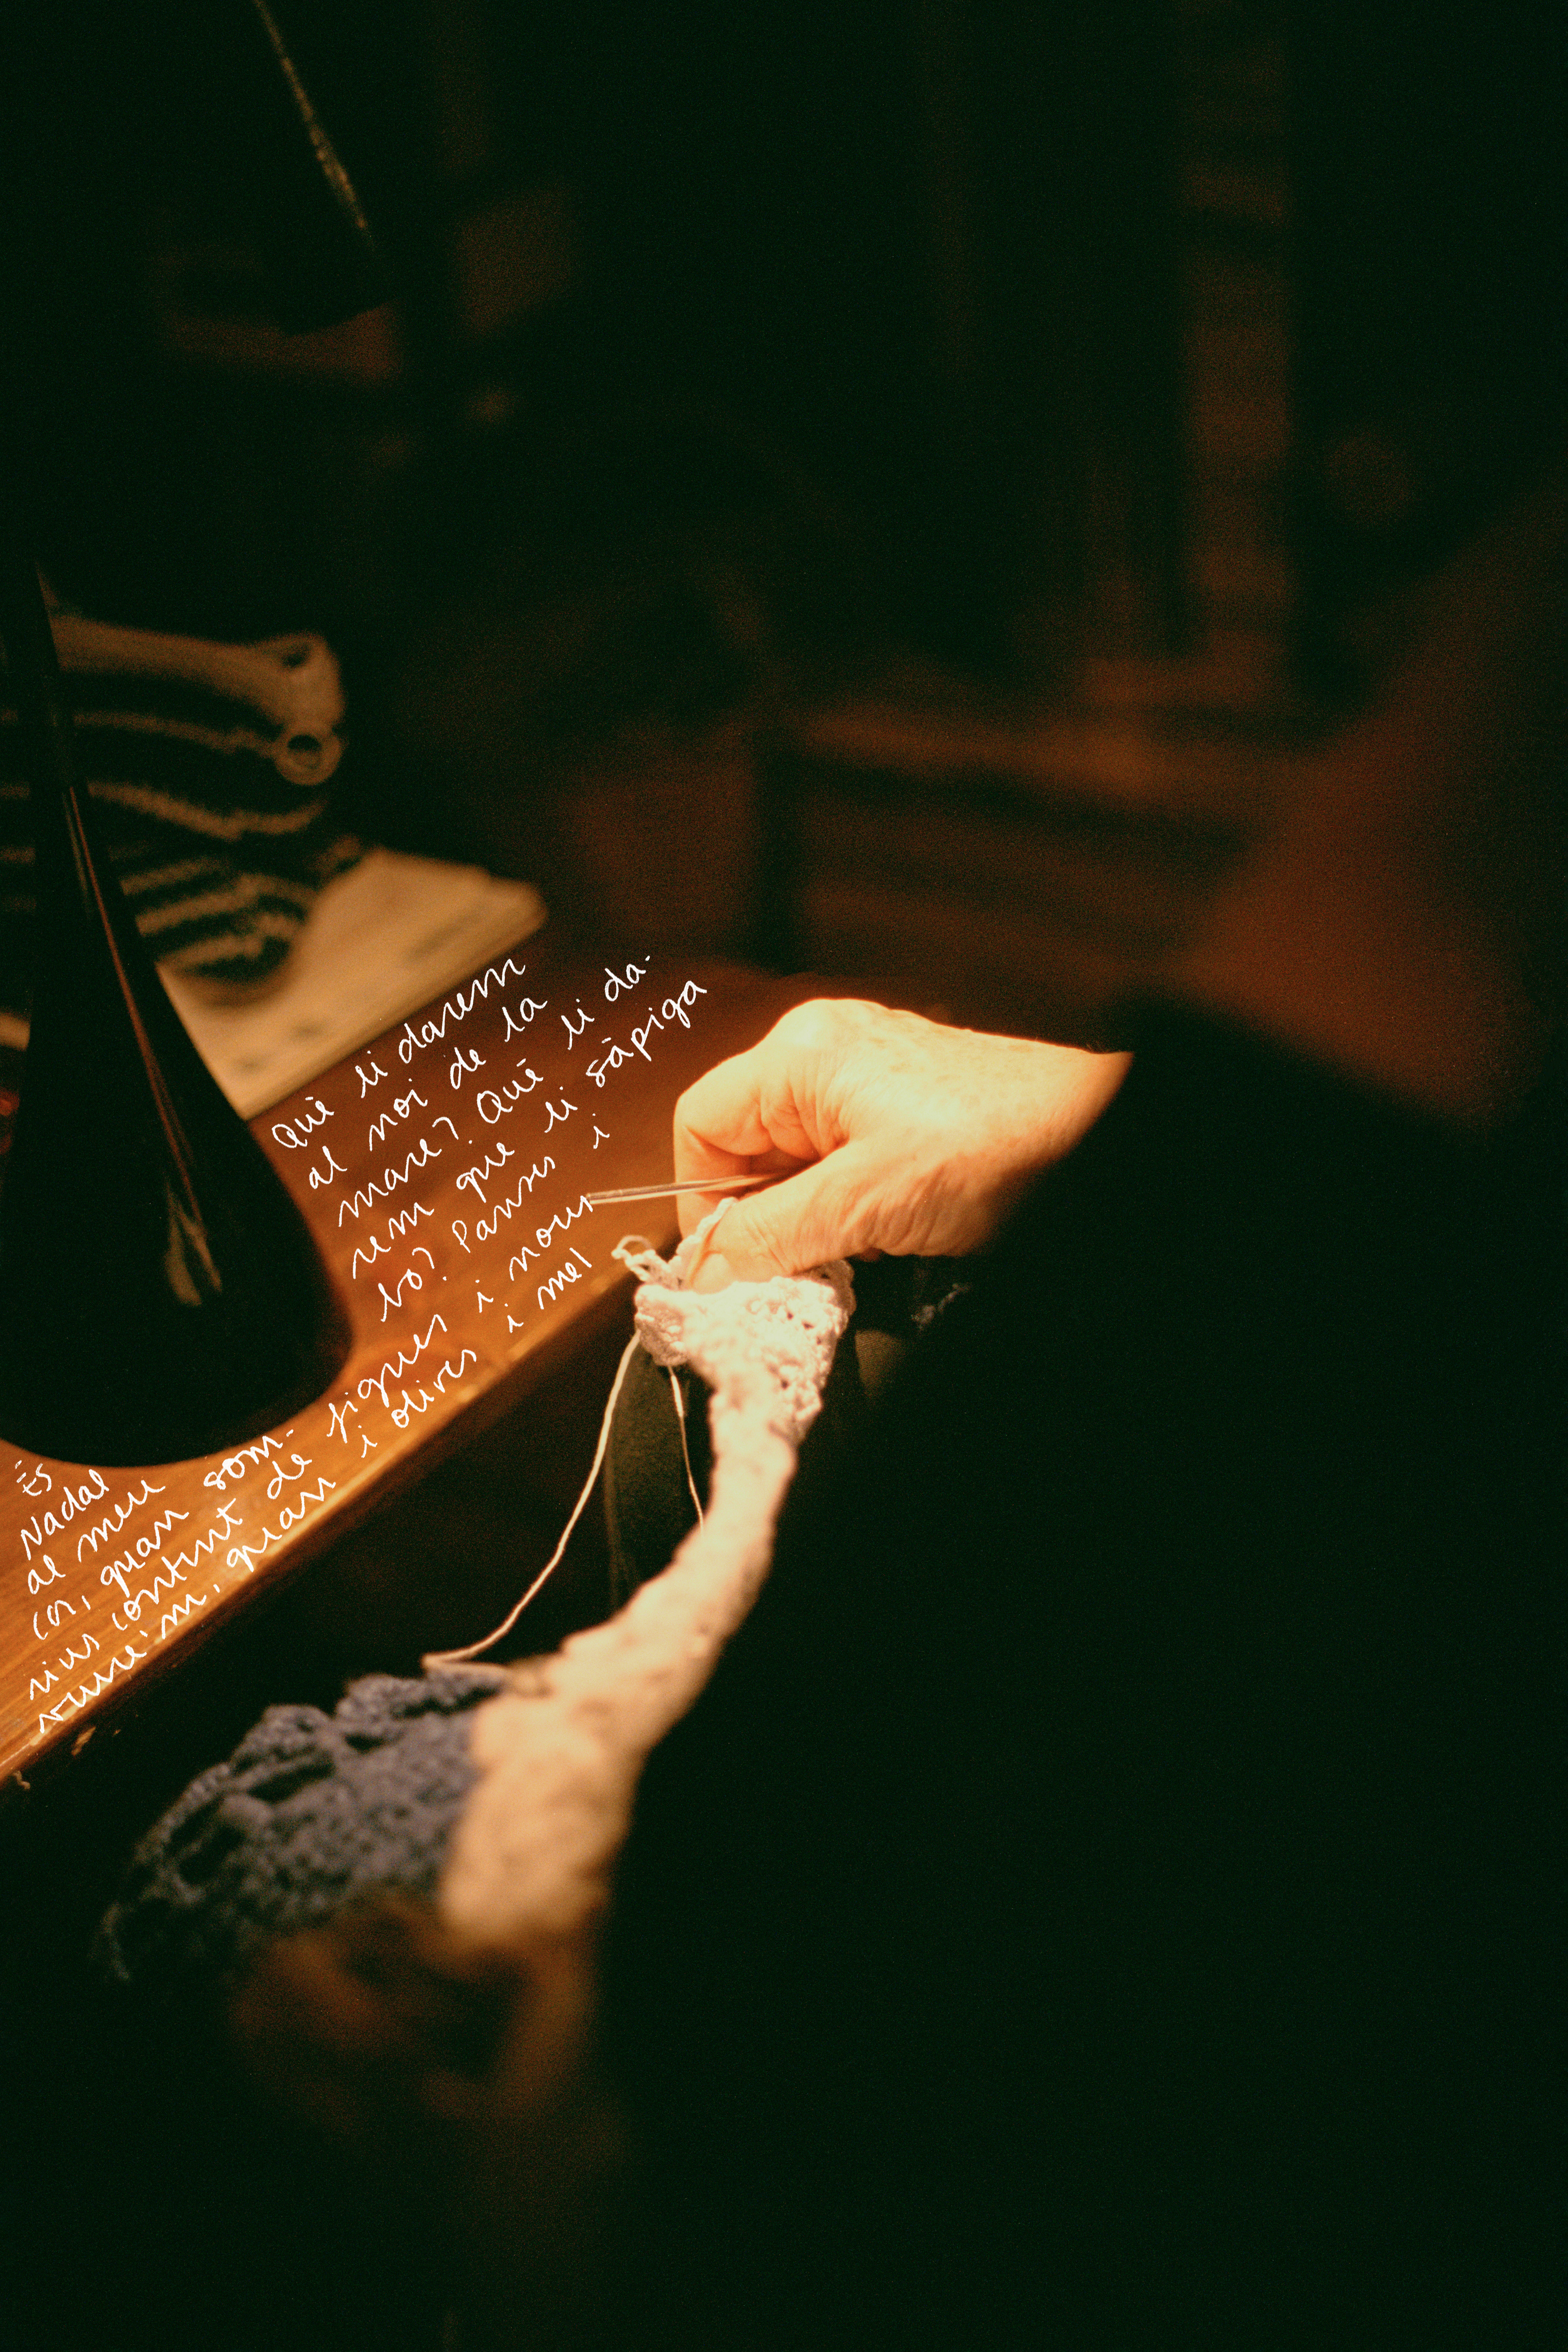 Què li darem
al noi de la
mare? Què li da-
rem que li sàpiga
bo? Panses i
figues i nous
i olives i mel
És
Nadal
al meu
cor, quan som-
rius content de
veure'm, quan